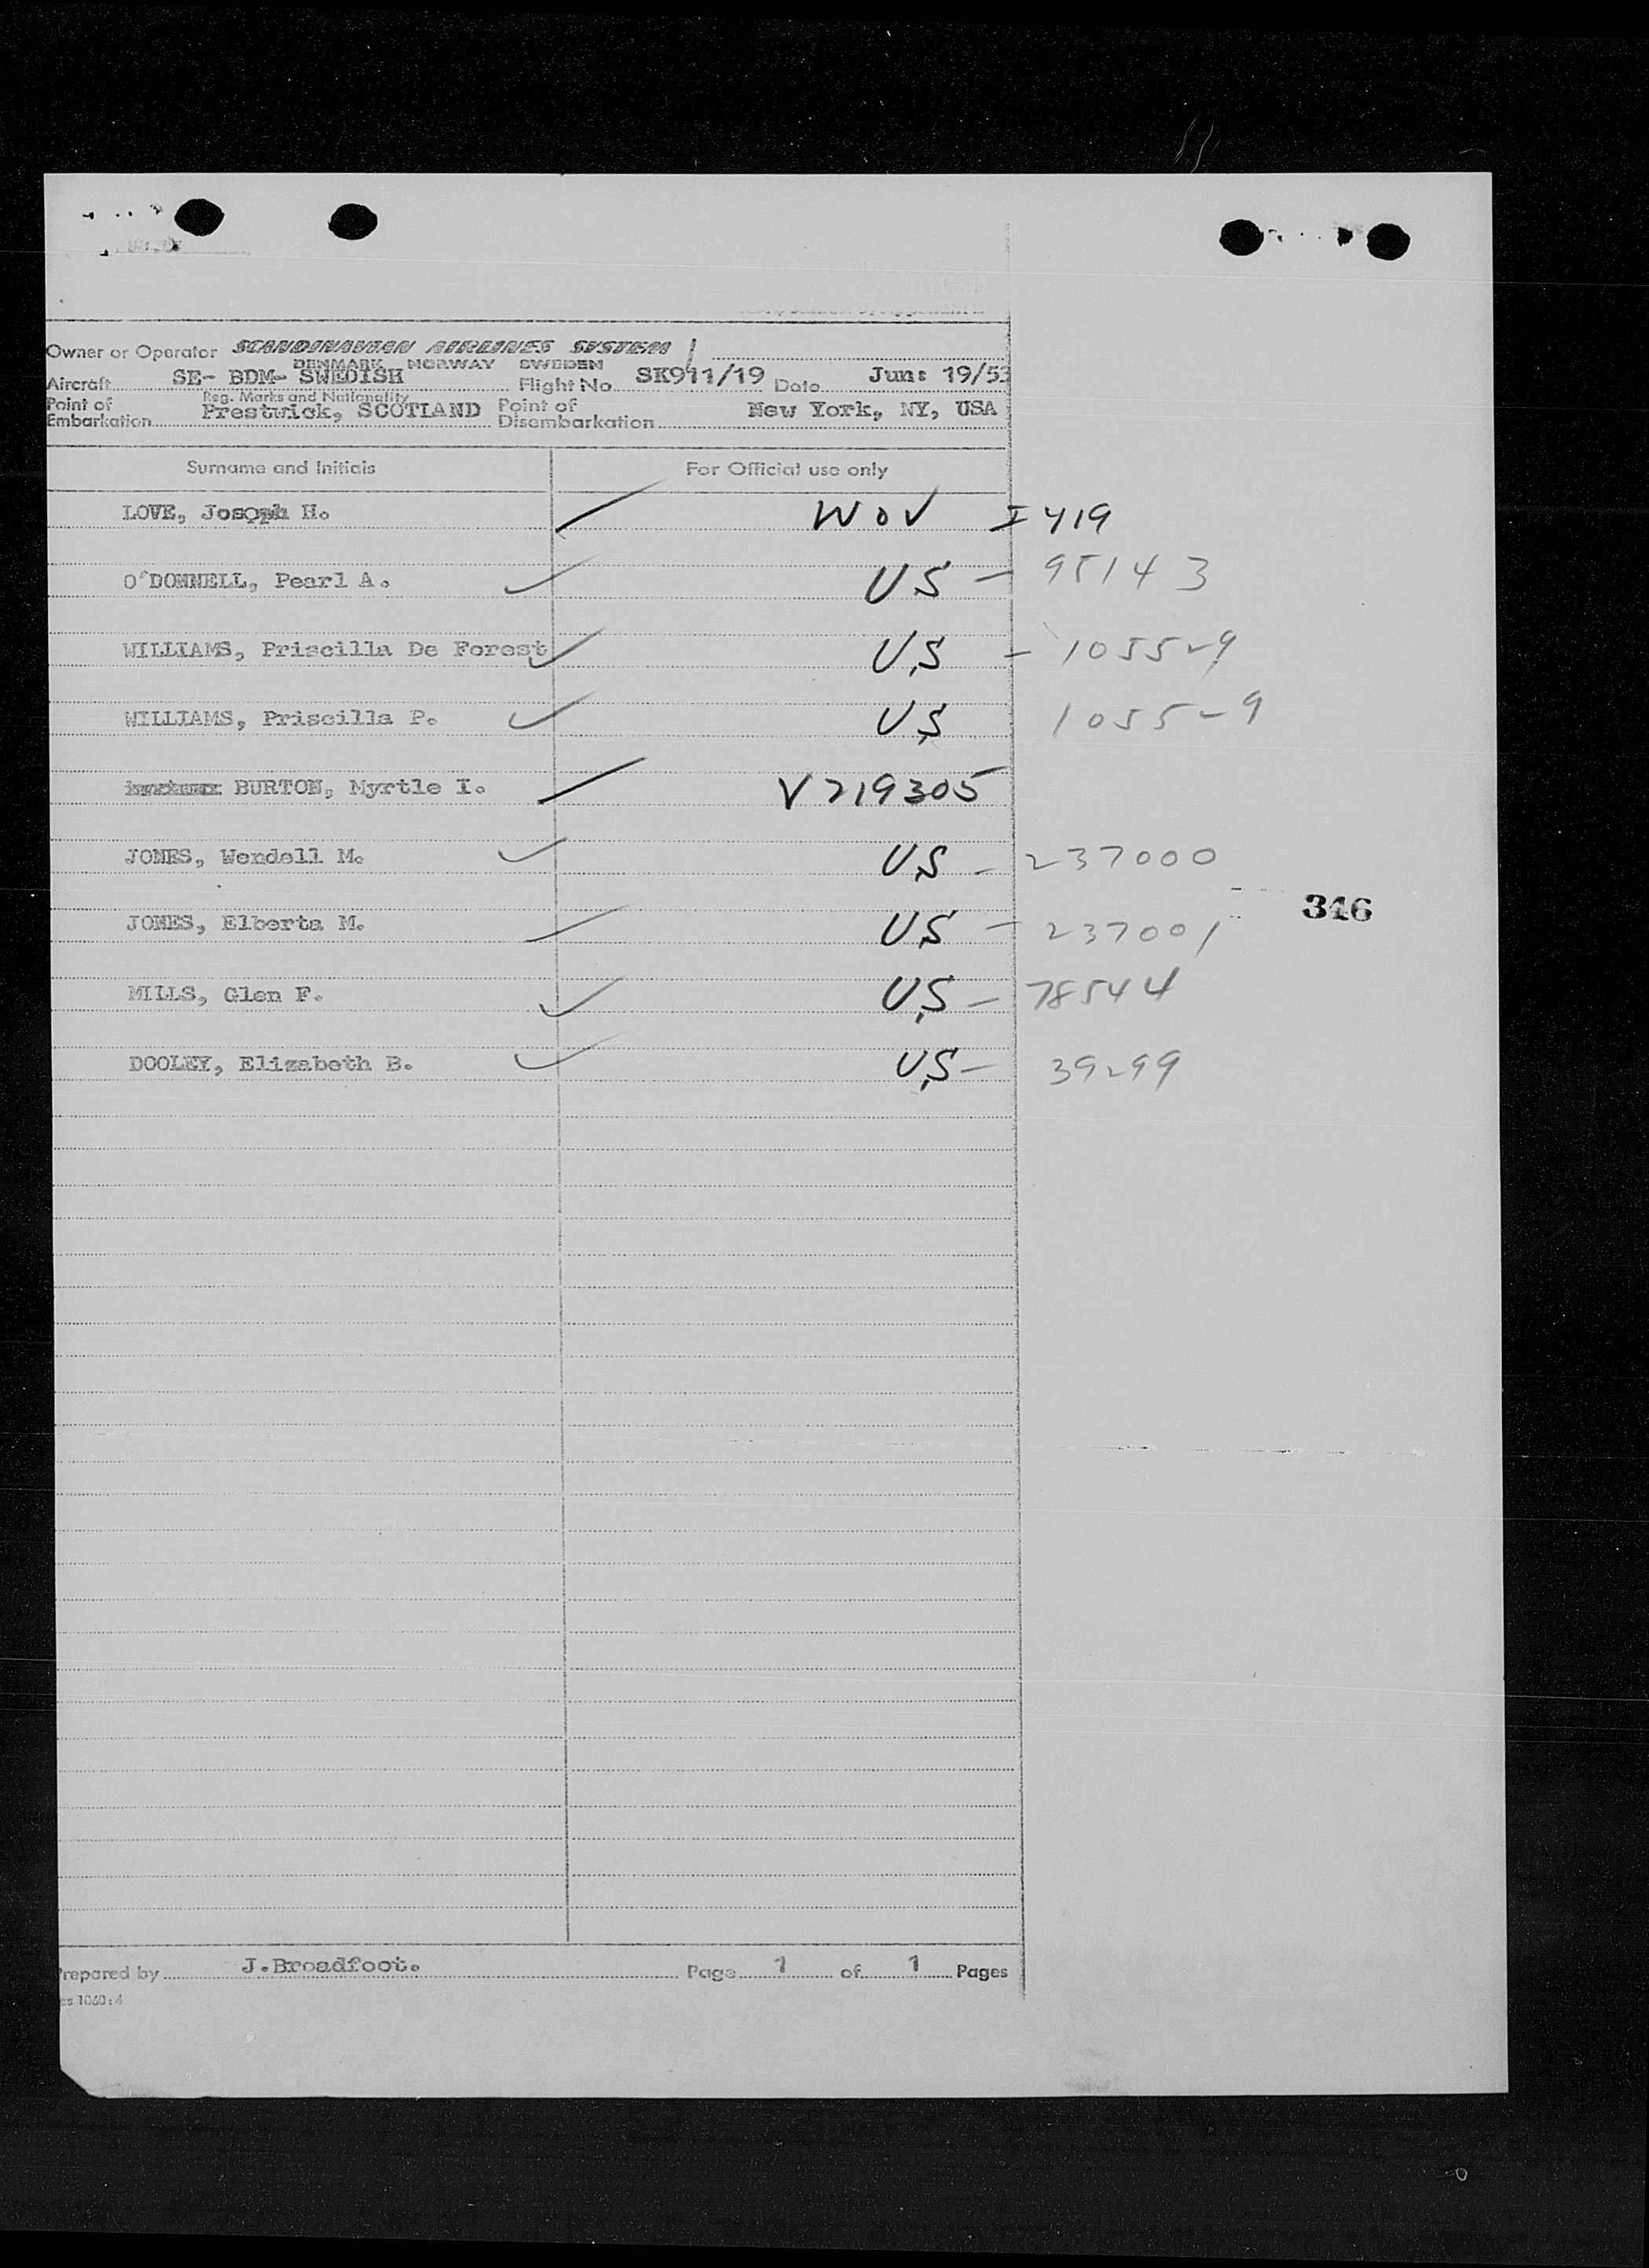 Owner or Operator SCANDINAVIAN AIRLINES SYSTEM
DENMARK NORWAY SWEDEN
Aircraft SE- BDM- SWEDISH Flight No. SK911/19 Date Jun: 19/53
Reg. Marks and Nationality
Point of Embarkation Prestwick, SCOTLAND Point of Disembarkation New York, NY, USA
Surname and Initials For Official use only
LOVE, Joseph H. WOV I 419
O'DONNELL, Pearl A. US - 95143
WILLIAMS, Priscilla De Forest US - 105529
WILLIAMS, Priscilla P. US 105529
BURTON, Myrtle I. V219305
JONES, Wendell M. US - 237000
346
JONES, Elberta M. US - 237001
MILLS, Glen F. US - 78544
DOOLEY, Elizabeth B. US - 39299
Prepared by J.Broadfoot. Page 1 of 1 Pages
1060:4